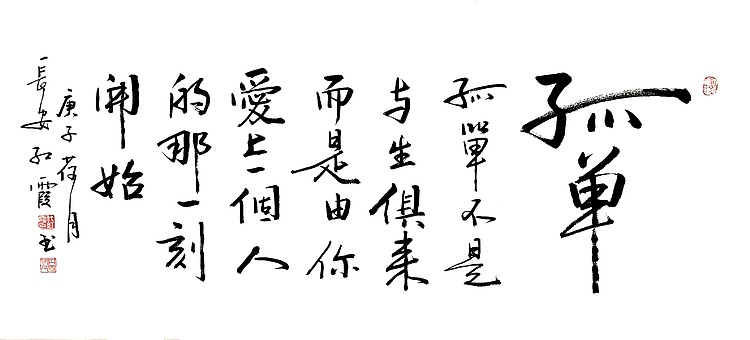 孤单
孤單不是
与生俱来
而是由你
愛上一個人
的那一刻
開始
庚子荷月
長安红霞书